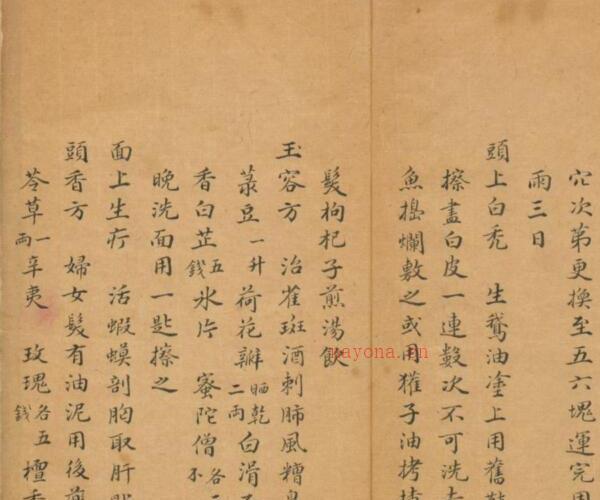 穴次第更換至五六塊運完用
雨三日
頭上白禿　生鵝油塗上用舊鞋
擦盡白皮一連數次不可洗去
魚搗爛敷之或用獾子油拷搽
髮枸杞子煎湯飲
玉容方　治雀斑酒刺肺風糟鼻
菉豆一升荷花瓣晒乾二兩白滑石
香白芷五錢氷片　蜜陀僧各二
晚洗面用一匙擦之
面上生疔　活蝦蟆剖胸取肝貼
頭香方　婦女髮有油泥用後煎
苓草一兩辛夷　玫瑰各五錢檀香
nayona.cn